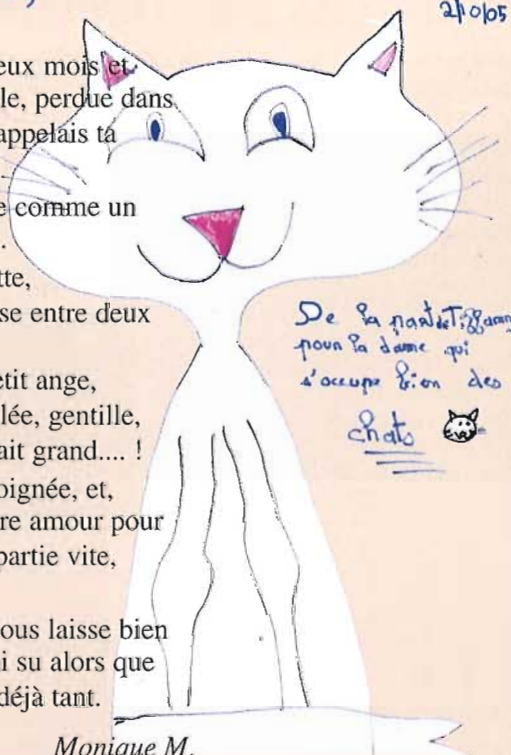 2/10/05
eux mois et
le, perdue dans
appelais ta
e comme un
.
tte,
se entre deux
etit ange,
lée, gentille,
ait grand.... !
oignée, et,
re amour pour
partie vite,
ous laisse bien
i su alors que
déjà tant.
Monique M.
De la part de Tiffany
pour la dame qui
s'occupe bien des
chats